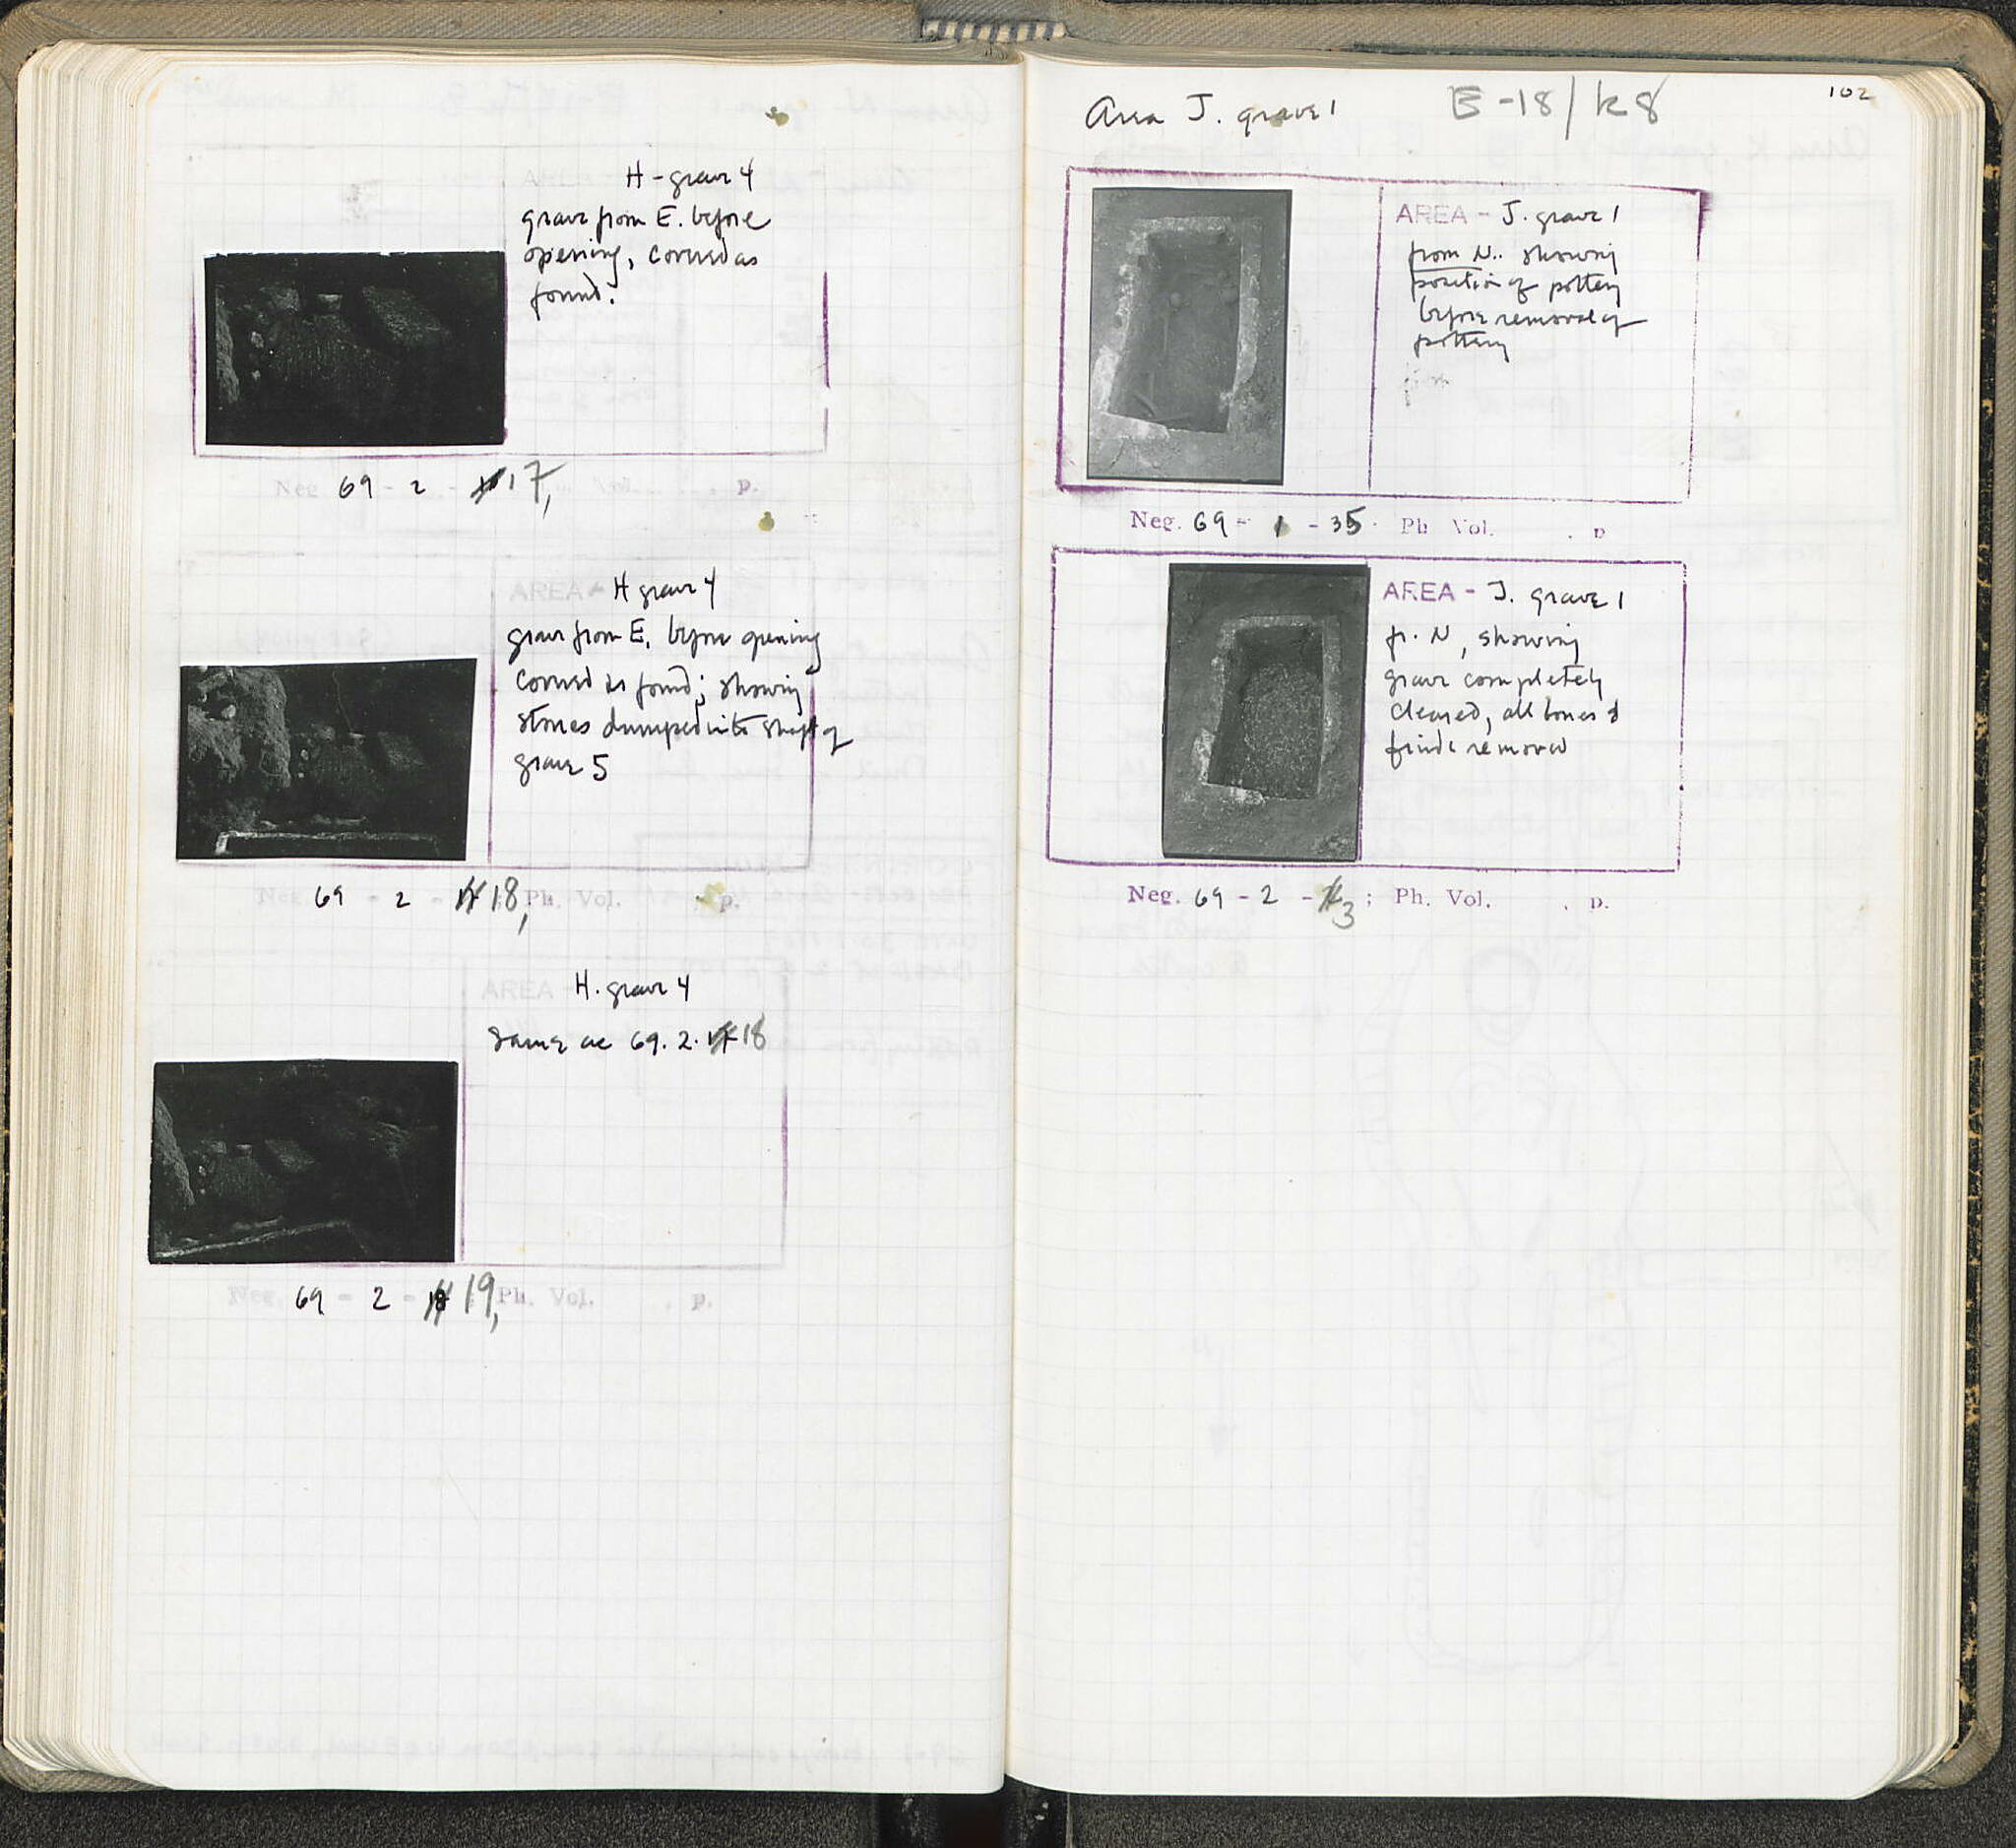 H - grave 4
grave from E. before
opening, covered as
found.
Neg 69 - 2 - 17, p.
AREA - H grave 4
grave from E. before opening
covered as found; showing
stones dumped into shaft of
grave 5
Neg. 69 - 2 - 18, Ph. Vol. . p.
AREA - H. grave 4
Same as 69. 2. 18
Neg. 69 - 2 - 19, Ph. Vol. . p.
102
Area J. grave 1 E-18/K8
AREA - J. grave 1
from N.. showing
position of pottery
before removal of
pottery
Neg. 69 - 1 - 35. Ph Vol. . p
AREA - J. grave 1
fr. N, showing
grave completely
cleared, all bones &
finds removed
Neg. 69 - 2 - 3 ; Ph. Vol. . p.